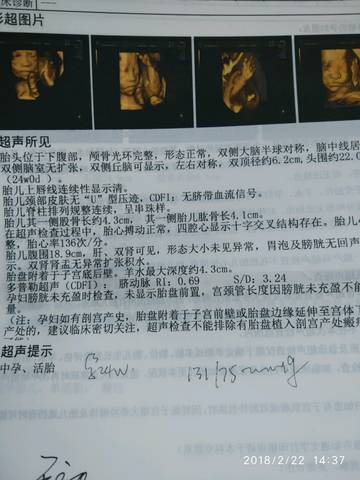 床诊断
形超图片
超声所见
胎头位于下腹部，颅骨光环完整，形态正常，双侧大脑半球对称，脑中线居
双侧脑室无扩张，双侧丘脑可显示，左右对称，双顶径约6.2cm,头围约22.0
（24w0d ）。
胎儿上唇线连续性显示清。
胎儿颈部皮肤无“U”型压迹，CDFI：无脐带血流信号。
胎儿脊柱排列规整连续，呈串珠样。
胎儿其一侧股骨长约4.3cm。 其一侧胎儿肱骨长4.1cm。
在超声检查过程中，胎心搏动正常，四腔心显示十字交叉结构存在。胎儿心
整，胎心率136次/分。
胎儿腹围18.9cm，肝、双肾可见，形态大小未见异常，胃泡及膀胱无回声
示。双肾肾盂无异常扩张积水。
胎盘附着于子宫底后壁，羊水最大深度约4.3cm。
多普勒超声（CDFI）： 脐动脉 RI: 0.69 S/D: 3.24
孕妇膀胱未充盈时检查，未显示胎盘前置，宫颈管长度因膀胱未充盈不能
量。
（注：孕妇如有剖宫产史，胎盘附着于子宫前壁或胎盘边缘延伸至宫体下
产处的，建议临床密切关注，超声检查不能排除有胎盘植入剖宫产处瘢痕
超声提示
中孕、活胎
24W. 131/75mmHg
2018/2/22 14:37